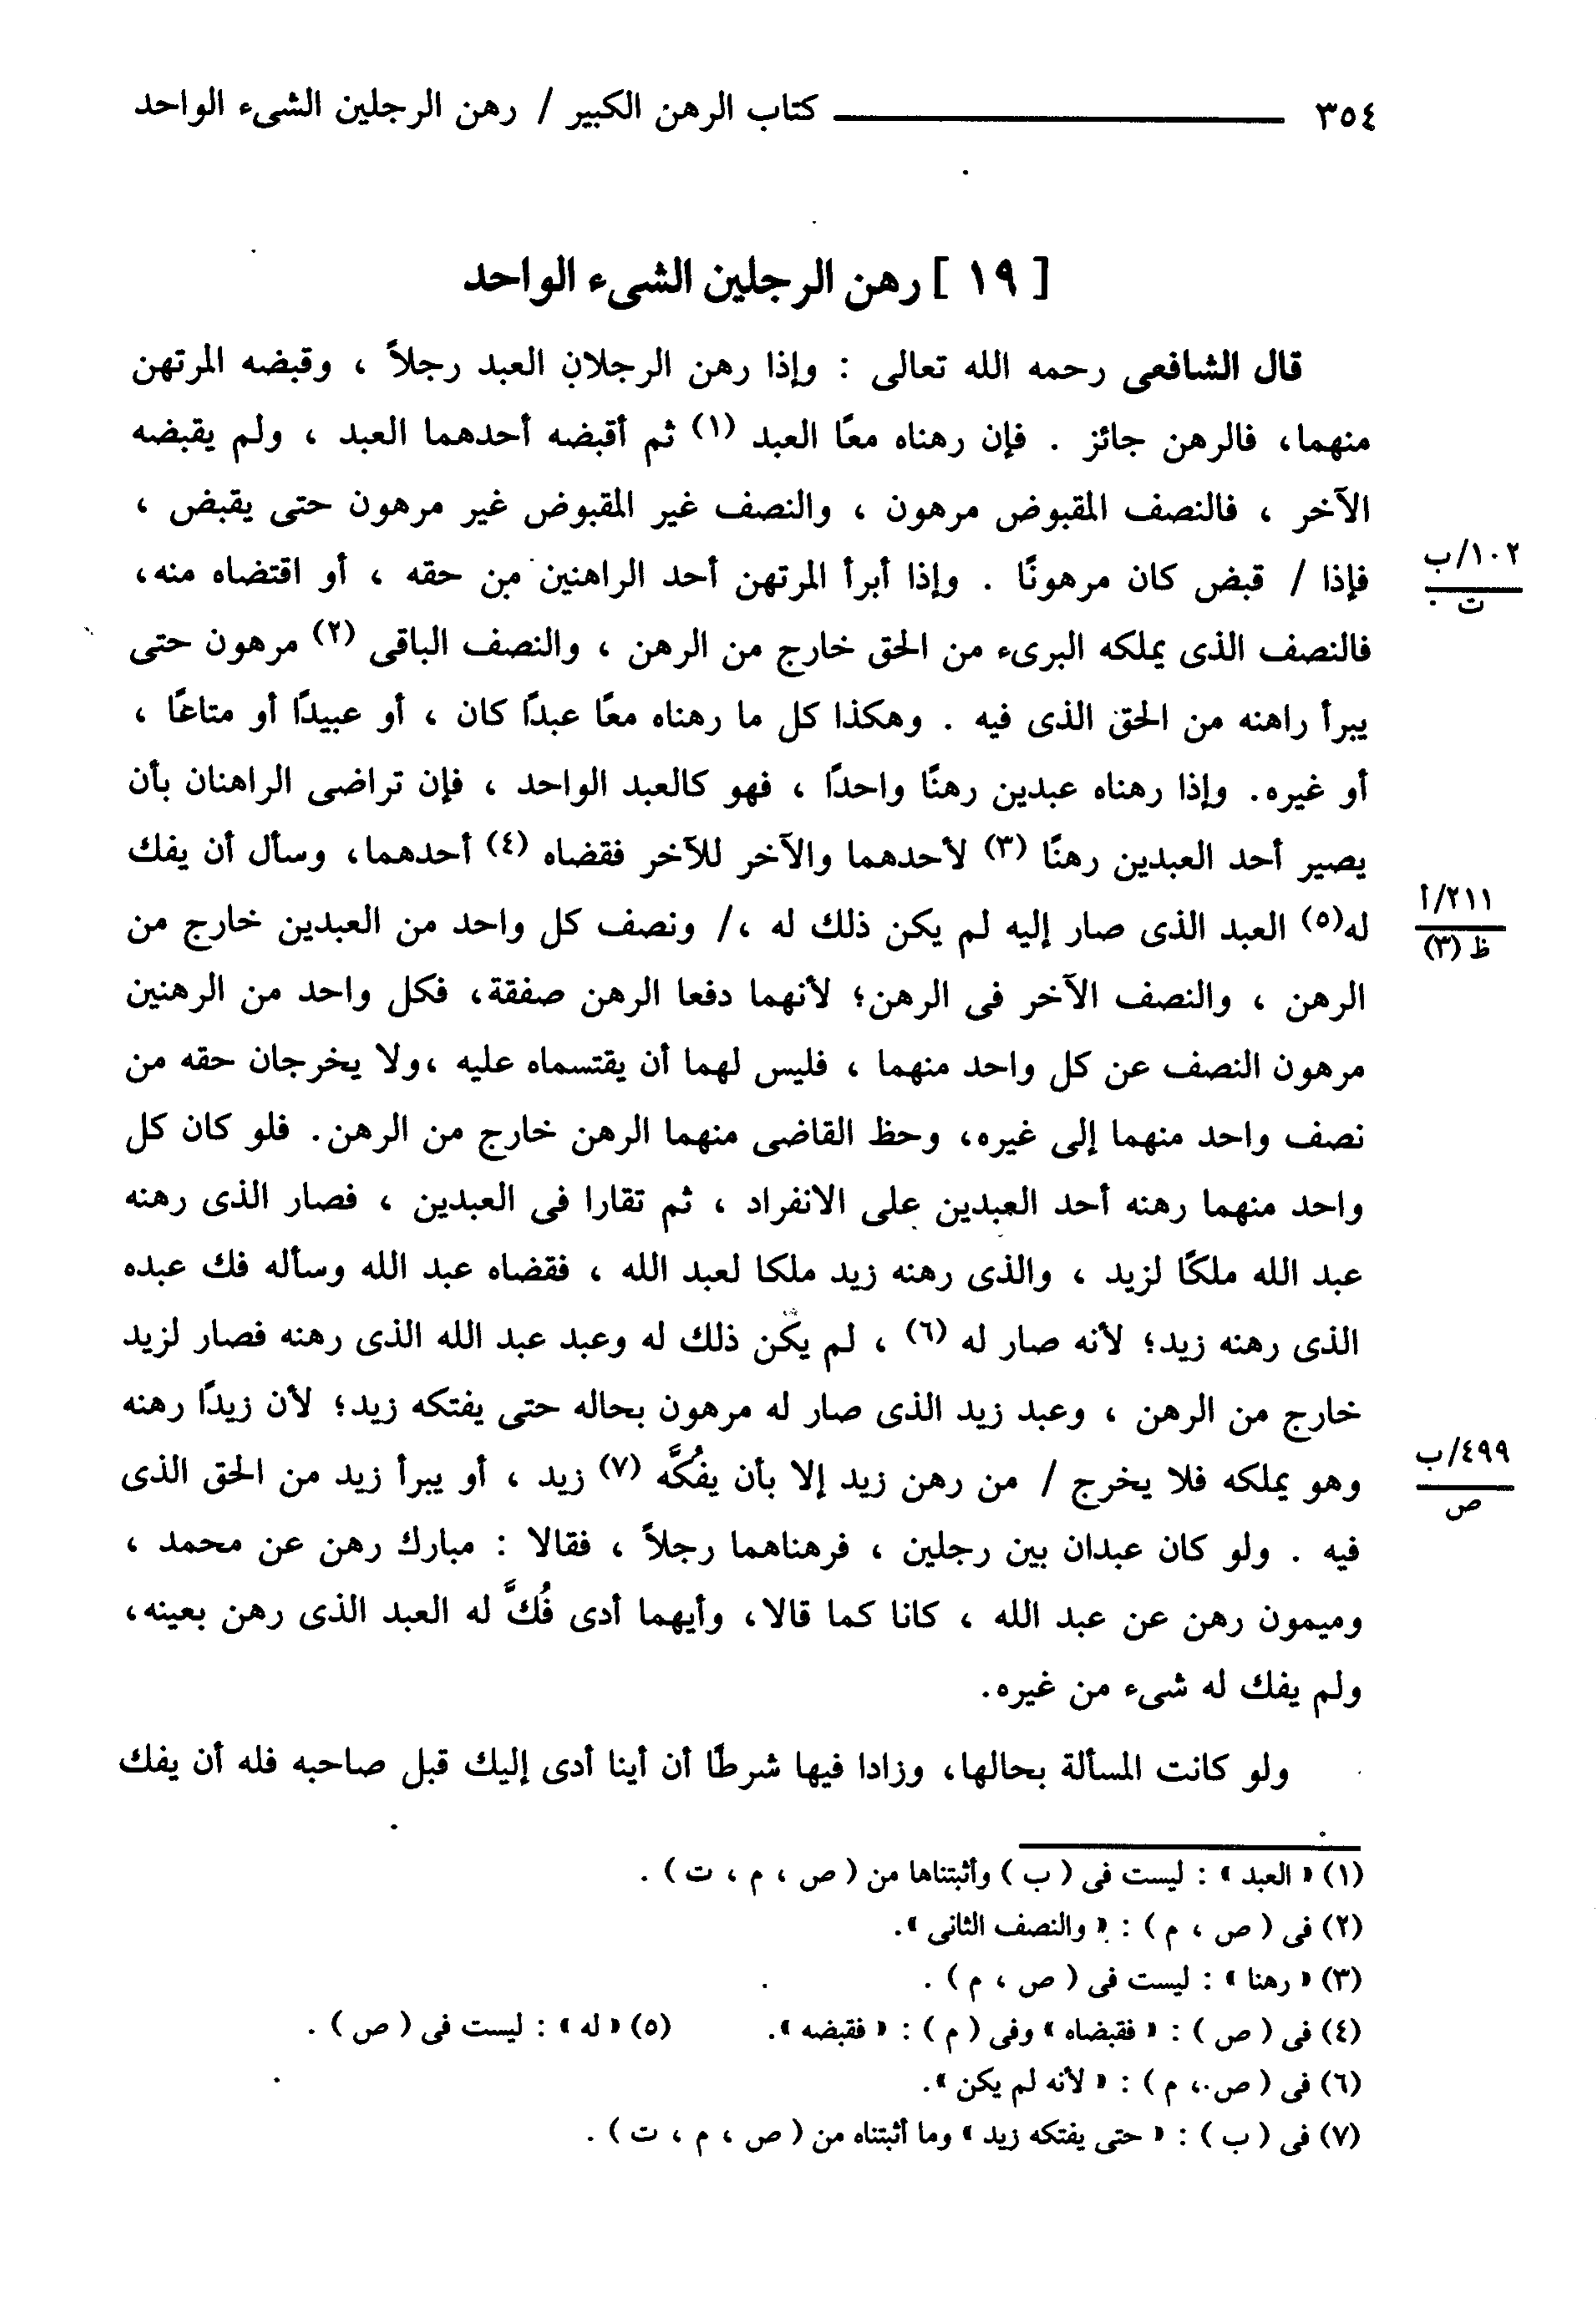 ٣٥٤ ــــــــــــــــ كتاب الرهن الكبير / رهن الرجلين الشىء الواحد
[ ١٩ ] رهن الرجلين الشىء الواحد
قال الشافعى رحمه الله تعالى : وإذا رهن الرجلان العبد رجلاً ، وقبضه المرتهن
منهما، فالرهن جائز . فإن رهناه معًا العبد (١) ثم أقبضه أحدهما العبد ، ولم يقبضه
الآخر ، فالنصف المقبوض مرهون ، والنصف غير المقبوض غير مرهون حتى يقبض ،
فإذا / قبض كان مرهونًا . وإذا أبرأ المرتهن أحد الراهنين من حقه ، أو اقتضاه منه،
١٠٢/ب
ت
فالنصف الذى يملكه البرىء من الحق خارج من الرهن ، والنصف الباقى (٢) مرهون حتى
يبرأ راهنه من الحق الذى فيه . وهكذا كل ما رهناه معًا عبدًا كان ، أو عبيدًا أو متاعًا ،
أو غيره. وإذا رهناه عبدين رهنًا واحدًا ، فهو كالعبد الواحد ، فإن تراضى الراهنان بأن
يصير أحد العبدين رهنًا (٣) لأحدهما والآخر للآخر فقضاه (٤) أحدهما، وسأل أن يفك
له(٥) العبد الذى صار إليه لم يكن ذلك له ،/ ونصف كل واحد من العبدين خارج من
٢١١/أ
ظ (٣)
الرهن ، والنصف الآخر فى الرهن؛ لأنهما دفعا الرهن صفقة، فكل واحد من الرهنين
مرهون النصف عن كل واحد منهما ، فليس لهما أن يقتسماه عليه ،ولا يخرجان حقه من
نصف واحد منهما إلى غيره، وحظ القاضى منهما الرهن خارج من الرهن. فلو كان كل
واحد منهما رهنه أحد العبدين على الانفراد ، ثم تقارا فى العبدين ، فصار الذى رهنه
عبد الله ملكًا لزيد ، والذى رهنه زيد ملكا لعبد الله ، فقضاه عبد الله وسأله فك عبده
الذى رهنه زيد؛ لأنه صار له (٦) ، لم يكن ذلك له وعبد عبد الله الذى رهنه فصار لزيد
خارج من الرهن ، وعبد زيد الذى صار له مرهون بحاله حتى يفتكه زيد؛ لأن زيدًا رهنه
وهو يملكه فلا يخرج / من رهن زيد إلا بأن يفُكَّه (٧) زيد ، أو يبرأ زيد من الحق الذى
٤٩٩/ب
ص
فيه . ولو كان عبدان بين رجلين ، فرهناهما رجلاً ، فقالا : مبارك رهن عن محمد ،
وميمون رهن عن عبد الله ، كانا كما قالا، وأيهما أدى فُكَّ له العبد الذى رهن بعينه،
ولم يفك له شىء من غيره.
ولو كانت المسألة بحالها، وزادا فيها شرطًا أن أينا أدى إليك قبل صاحبه فله أن يفك
(١) « العبد » : ليست فى ( ب ) وأثبتناها من ( ص ، م ، ت ) .
(٢) فى ( ص ، م ) : « والنصف الثانى ».
(٣) « رهنا » : ليست فى ( ص ، م ) .
(٤) فى ( ص ) : « فقبضاه » وفى ( م ) : « فقبضه ». (٥) « له » : ليست فى ( ص ) .
(٦) فى ( ص ، م ) : « لأنه لم يكن ».
(٧) فى ( ب ) : « حتى يفتكه زيد » وما أثبتناه من ( ص ، م ، ت ) .